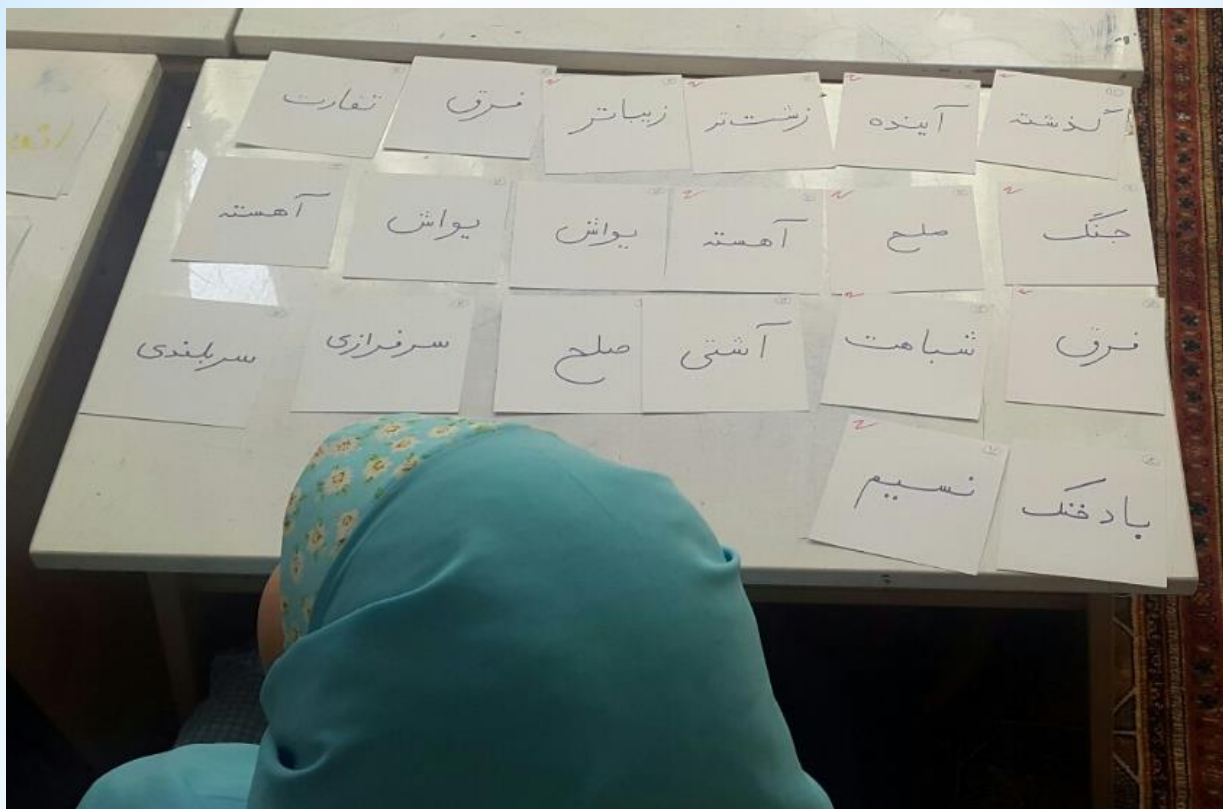 گذشته آینده زشت‌تر زیباتر فرق تفاوت
جنگ صلح آهسته یواش یواش آهسته
فرق شباهت آشتی صلح سرفرازی سربلندی
باد خنک نسیم